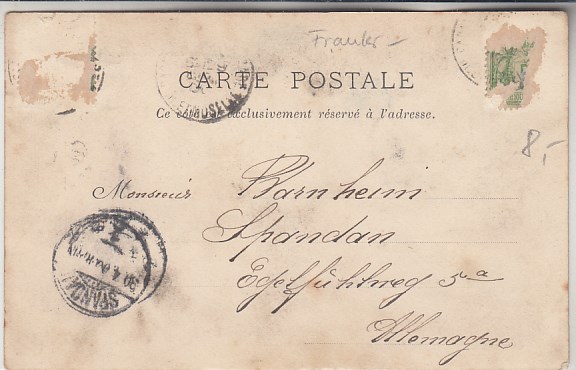 Franker -
CARTE POSTALE
Ce côté est exclusivement réservé à l'adresse.
8,-
Monsieur Warnheim
Spandau
5a
Allemagne
SPANDAU